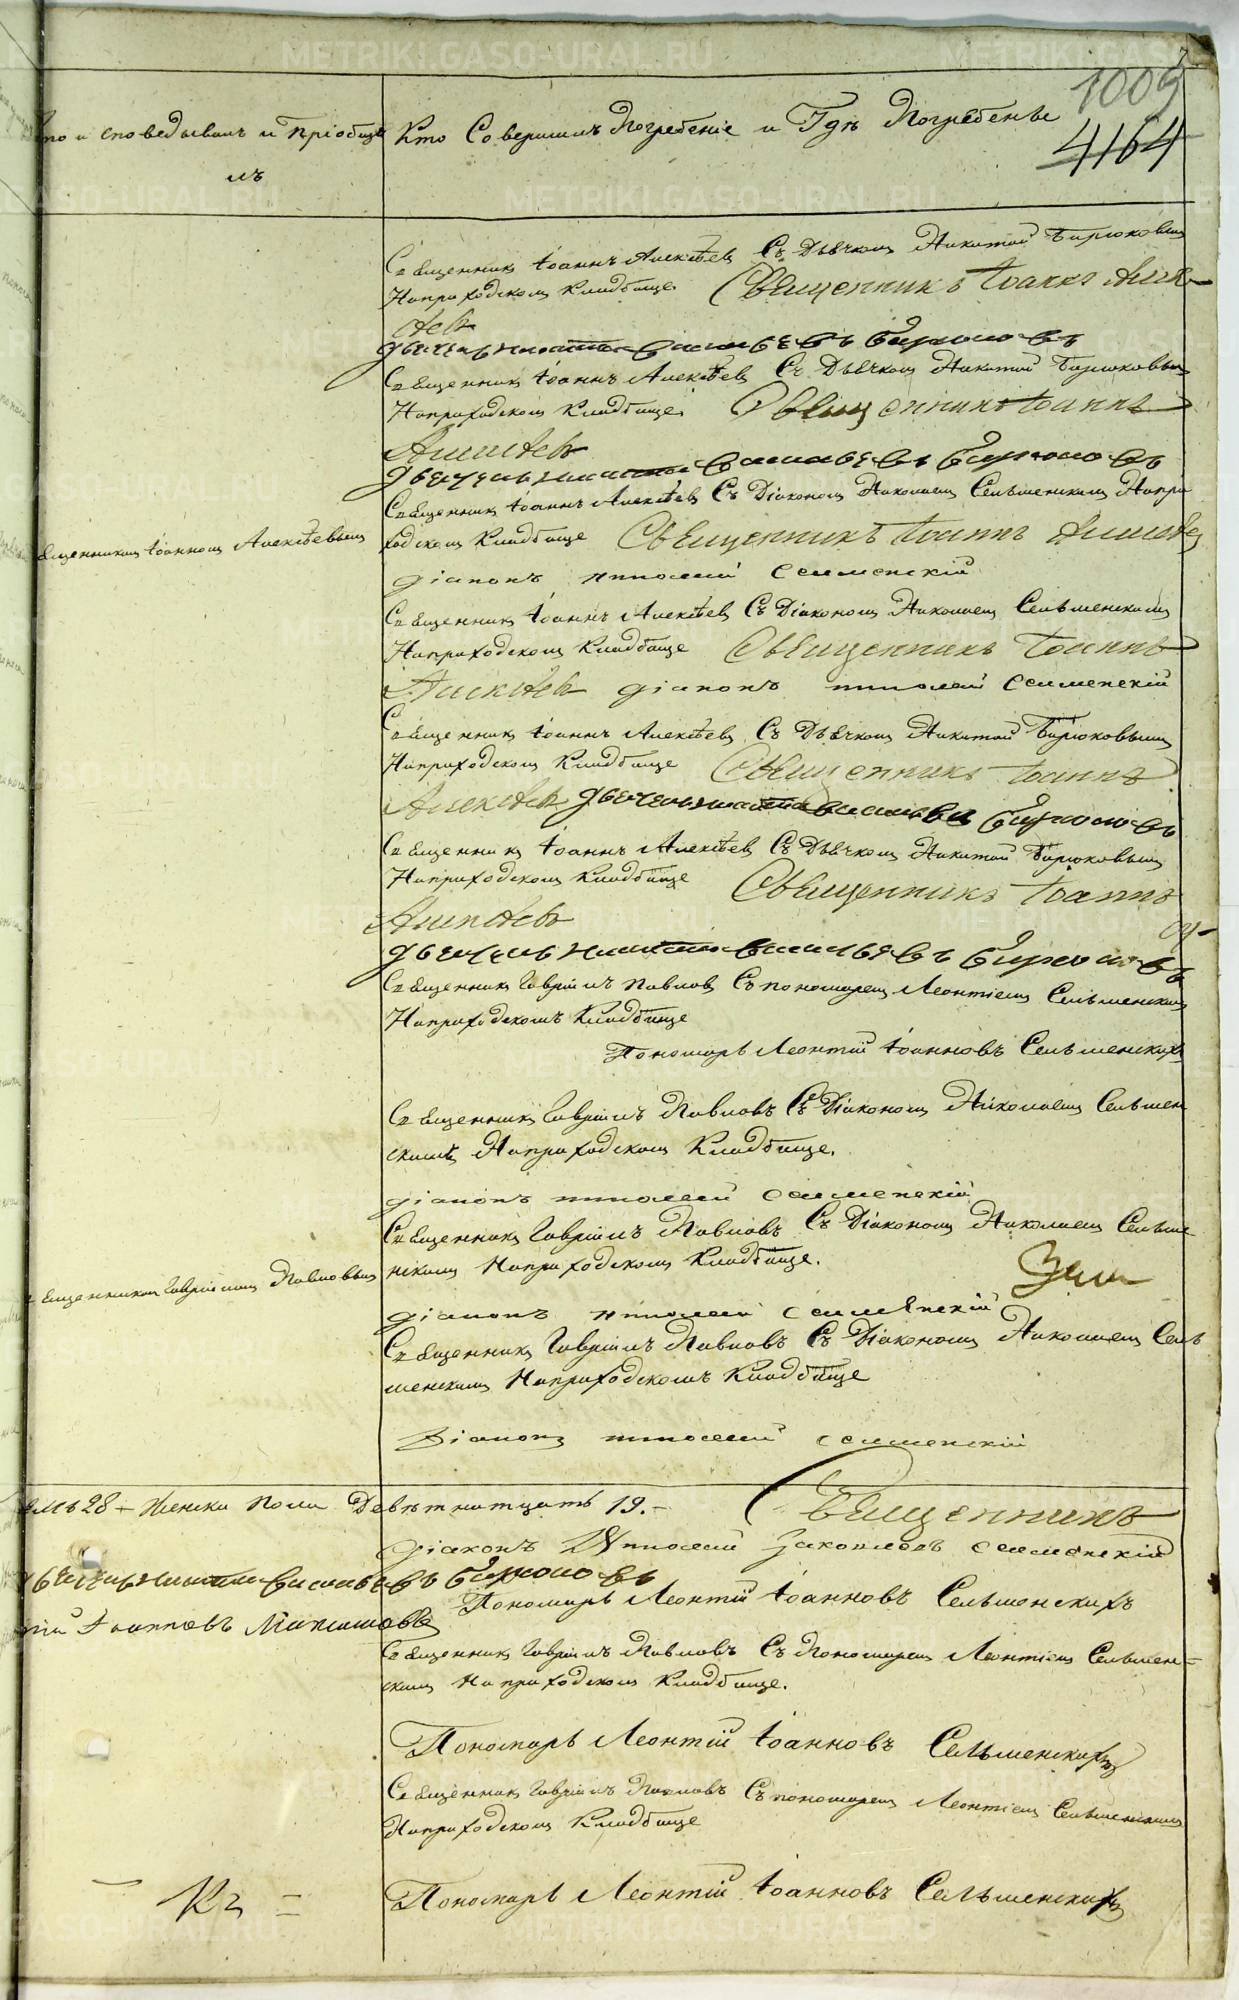 1009
4164
кто исповедывалъ и Пріобща
лъ
Кто Совершилъ Погребеніе и Гдѣ Погребены
Священникъ Іоаннъ Алексѣевъ Съ Дьячкомъ Никитой Бирюковымъ
На приходскомъ Кладбище Священникъ Іоаннъ Алек-
сѣевъ
дьячекъ никита васильевъ бирюковъ
Священникъ Іоаннъ Алексѣевъ Съ Дьячкомъ Никитой Бирюковымъ
На приходскомъ Кладбище Священникъ Іоаннъ
Алексѣевъ
дьячекъ никита васильевъ бирюковъ
Священникъ Іоаннъ Алексѣевъ Съ Діакономъ Николаемъ Сельменскимъ На при
ходскомъ Кладбище Священникъ Іоаннъ Алексѣев
Священникомъ Іоанномъ Алексѣевымъ
діаконъ николай селменскій
Священникъ Іоаннъ Алексѣевъ Съ Діакономъ Николаемъ Сельменскимъ
На приходскомъ Кладбище Священникъ Іоаннъ
Алексѣевъ діаконъ николай селменскій
Священникъ Іоаннъ Алексѣевъ Съ Дьячкомъ Никитой Бирюковымъ
На приходскомъ Кладбище Священникъ Іоаннъ
Алексѣевъ дьячекъ никита васильевъ бирюковъ
Священникъ Іоаннъ Алексѣевъ Съ Дьячкомъ Никитой Бирюковымъ
На приходскомъ Кладбище Священникъ Іоаннъ
Алексѣевъ
дьячекъ никита васильевъ бирюковъ
Священникъ Гавріилъ Павловъ Съ пономаремъ Леонтіемъ Сельменскимъ
На приходскомъ Кладбище
Пономарь Леонтій Іоанновъ Сельменскихъ
Священникъ Гавріилъ Павловъ Съ Діакономъ Николаемъ Сельмен
скимъ На приходскомъ Кладбище.
діаконъ николай селменскій
Священникъ Гавріилъ Павловъ Съ Діакономъ Николаемъ Сельме
нскимъ На приходскомъ Кладбище.
Священникомъ Гавріиломъ Павловымъ
діаконъ николай селменскій
Священникъ Гавріилъ Павловъ Съ Діакономъ Николаемъ Сель
менскимъ На приходскомъ Кладбище
Діаконъ николай селменскій
28 – Женска пола Девѣтнатцать 19. –
Священникъ
діаконъ Николай селменскій
дьячекъ никита васильевъ бирюковъ
Пономарь Леонтій Іоанновъ Сельменскихъ
Іоанновъ
Священникъ Гавріилъ Павловъ Съ Пономаремъ Леонтіемъ Сельмен=
скимъ На приходскомъ Кладбище.
Пономарь Леонтій Іоанновъ Сельменскихъ
Священникъ Гавріилъ Павловъ Съ пономаремъ Леонтіемъ Сельменскимъ
На приходскомъ Кладбище
Пономарь Леонтій Іоанновъ Сельменскихъ
METRIKI.GASO-URAL.RU